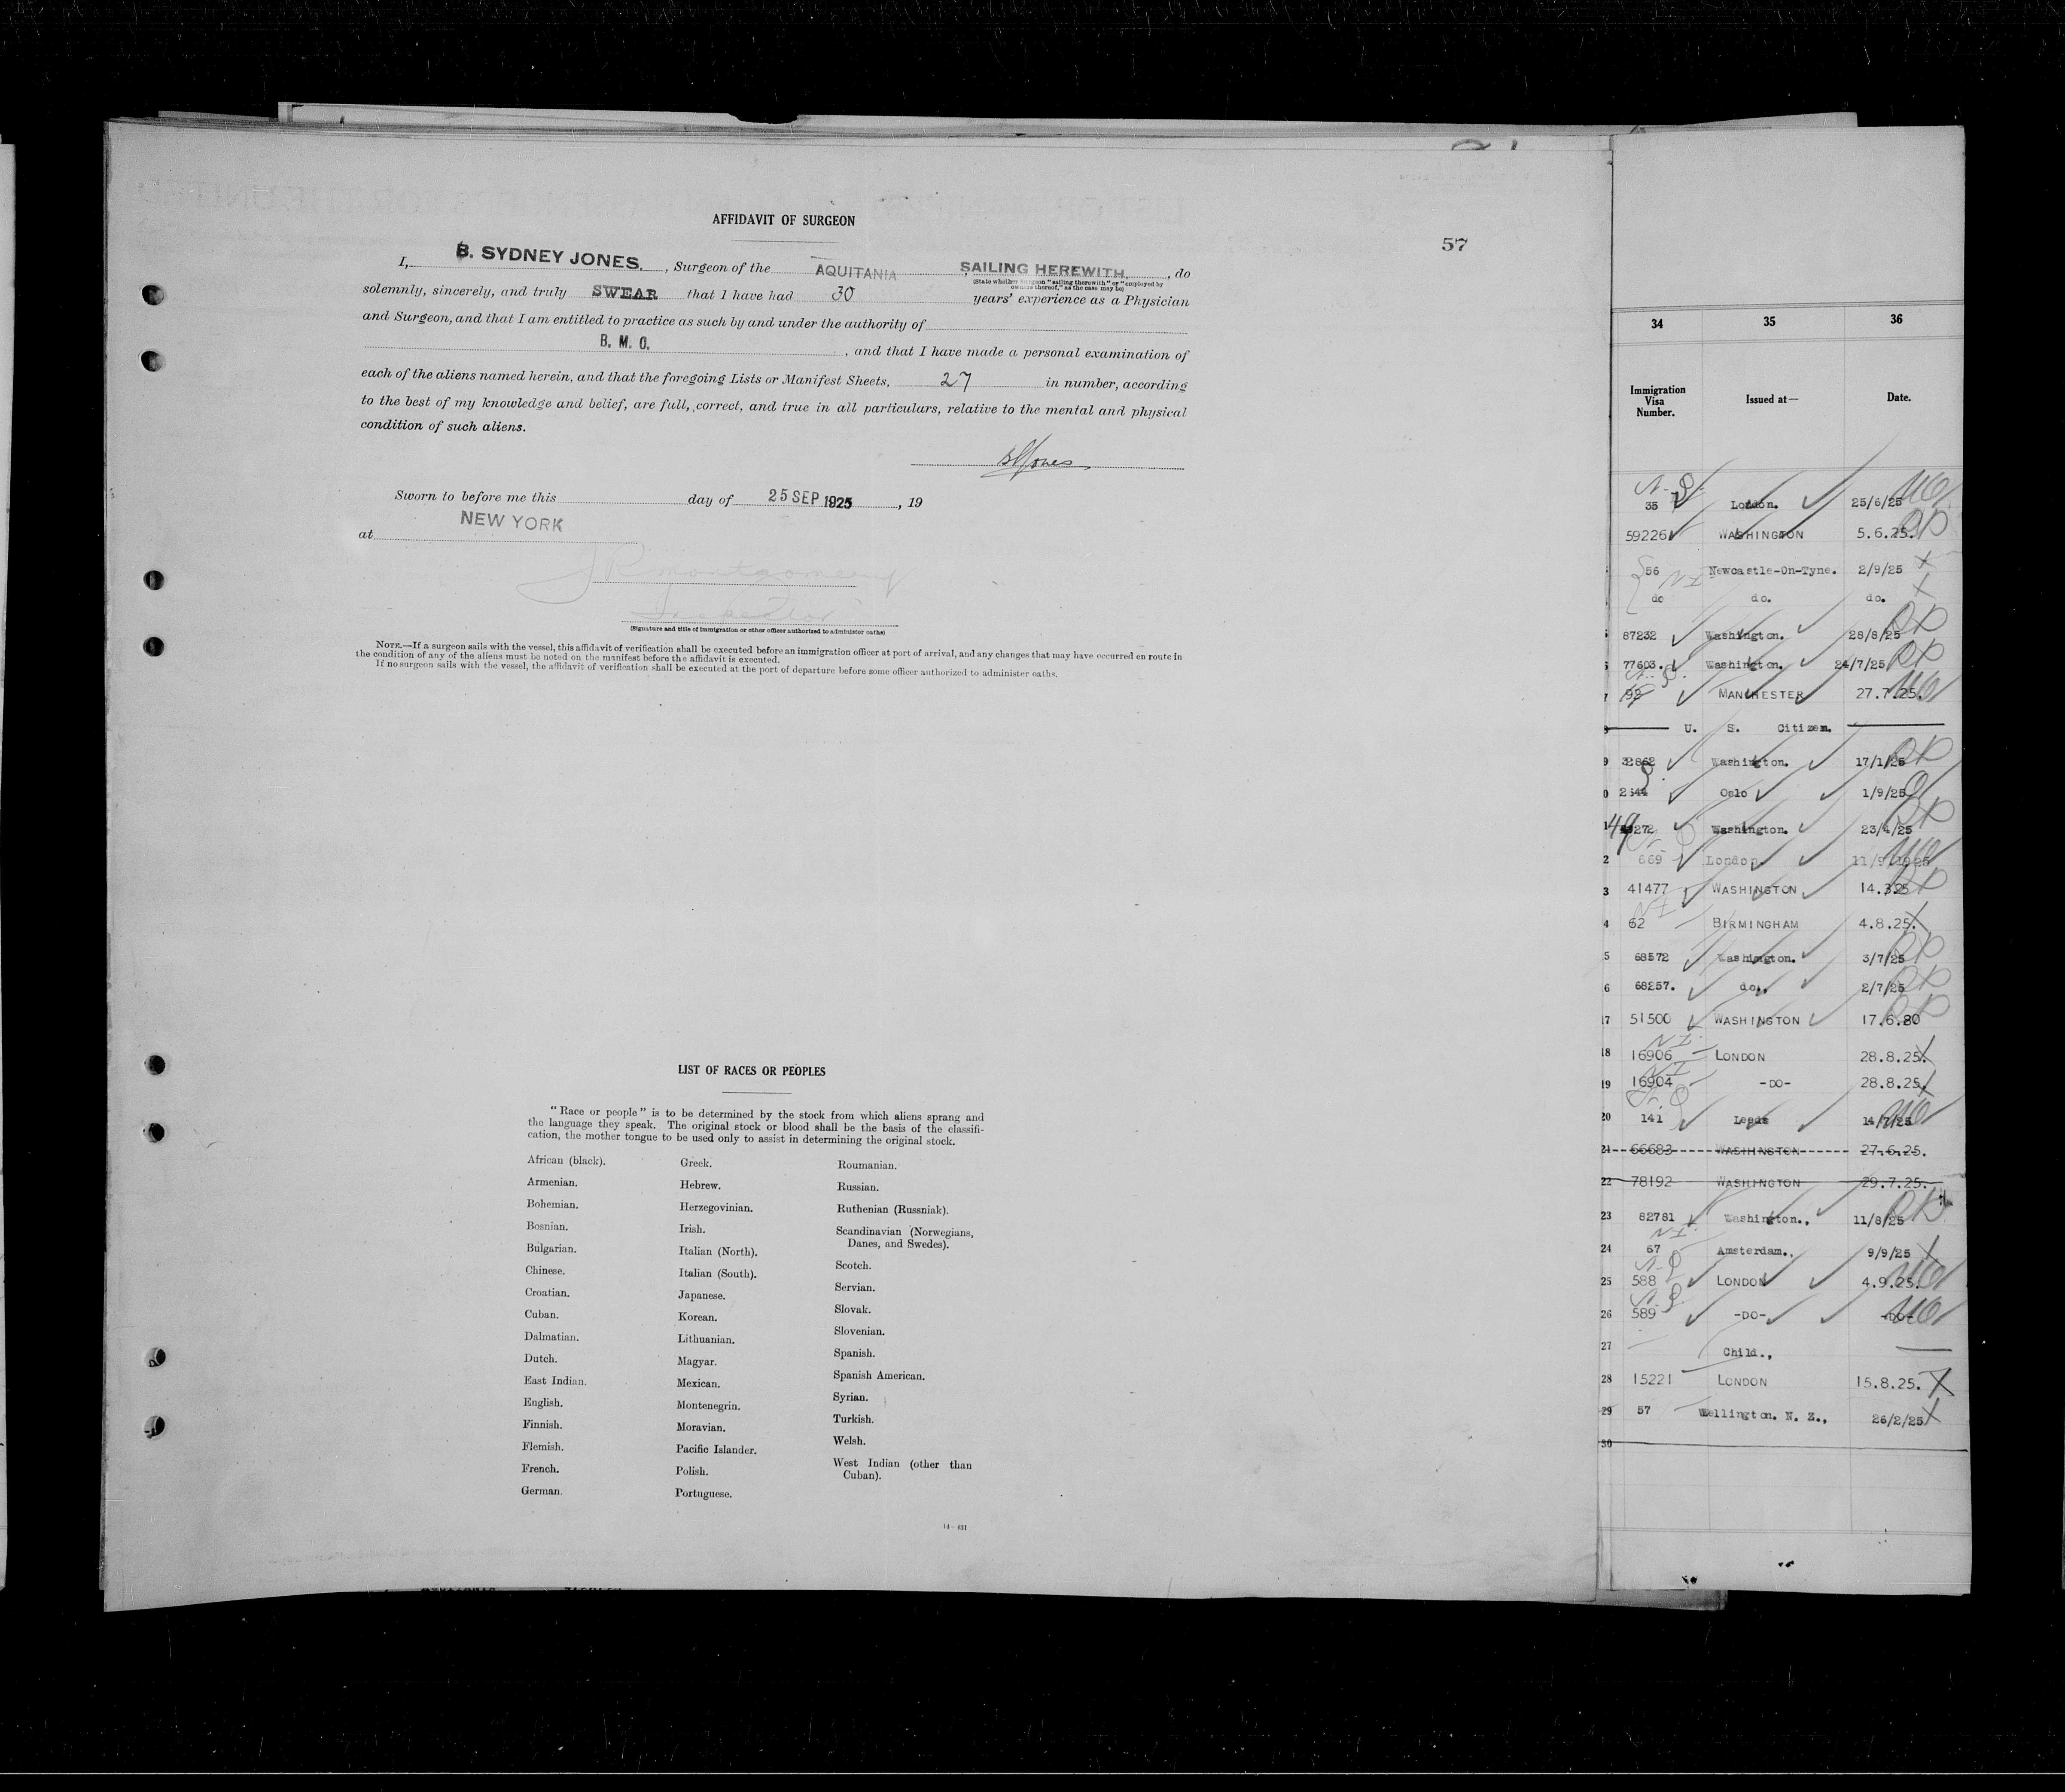 AFFIDAVIT OF SURGEON
57
I, B. SYDNEY JONES. , Surgeon of the AQUITANIA , SAILING HEREWITH. , do
(State whether Surgeon "sailing therewith" or "employed by
owners thereof," as the case may be)
solemnly, sincerely, and truly SWEAR that I have had 30 years' experience as a Physician
and Surgeon, and that I am entitled to practice as such by and under the authority of
B. M. O. , and that I have made a personal examination of
each of the aliens named herein, and that the foregoing Lists or Manifest Sheets, 27 in number, according
to the best of my knowledge and belief, are full, correct, and true in all particulars, relative to the mental and physical
condition of such aliens.
Sworn to before me this day of 25 SEP 1925 , 19
at NEW YORK
J R Montgomery
(Signature and title of immigration or other officer authorized to administer oaths)
NOTE.—If a surgeon sails with the vessel, this affidavit of verification shall be executed before an immigration officer at port of arrival, and any changes that may have occurred en route in
the condition of any of the aliens must be noted on the manifest before the affidavit is executed.
If no surgeon sails with the vessel, the affidavit of verification shall be executed at the port of departure before some officer authorized to administer oaths.
LIST OF RACES OR PEOPLES
"Race or people" is to be determined by the stock from which aliens sprang and
the language they speak. The original stock or blood shall be the basis of the classifi-
cation, the mother tongue to be used only to assist in determining the original stock.
African (black).
Armenian.
Bohemian.
Bosnian.
Bulgarian.
Chinese.
Croatian.
Cuban.
Dalmatian.
Dutch.
East Indian.
English.
Finnish.
Flemish.
French.
German.
Greek.
Hebrew.
Herzegovinian.
Irish.
Italian (North).
Italian (South).
Japanese.
Korean.
Lithuanian.
Magyar.
Mexican.
Montenegrin.
Moravian.
Pacific Islander.
Polish.
Portuguese.
Roumanian.
Russian.
Ruthenian (Russniak).
Scandinavian (Norwegians,
Danes, and Swedes).
Scotch.
Servian.
Slovak.
Slovenian.
Spanish.
Spanish American.
Syrian.
Turkish.
Welsh.
West Indian (other than
Cuban).
34 35 36
Immigration
Visa
Number.
Issued at—
Date.
35 London. 25/6/25
59226 WASHINGTON 5.6.25.
56 Newcastle-On-Tyne. 2/9/25
do do. do.
87232 Washington. 28/8/25
77603. Washington. 24/7/25
MANCHESTER 27.7.25.
U. S. Citizen.
9 32862 Washington. 17/1/25
Oslo 1/9/25
Washington. 23/4/25
2 669 London. 11/9/1925
3 41477 WASHINGTON 14.3.25
4 62 BIRMINGHAM 4.8.25.
5 68572 Washington. 3/7/25
6 68257. do., 2/7/25
17 51500 WASHINGTON 17.6.
18 16906 LONDON 28.8.25.
19 16904 -DO- 28.8.25.
20 141 Leeds 14/7/25
21 66683 WASHINGTON 27.6.25.
22 78192 WASHINGTON 29.7.25.
23 82781 Washington., 11/8/25
24 67 Amsterdam., 9/9/25
25 588 LONDON 4.9.25.
26 589 -DO- -DO-
27 Child.,
28 15221 LONDON 15.8.25.
29 57 Wellington. N. Z., 26/2/25
30